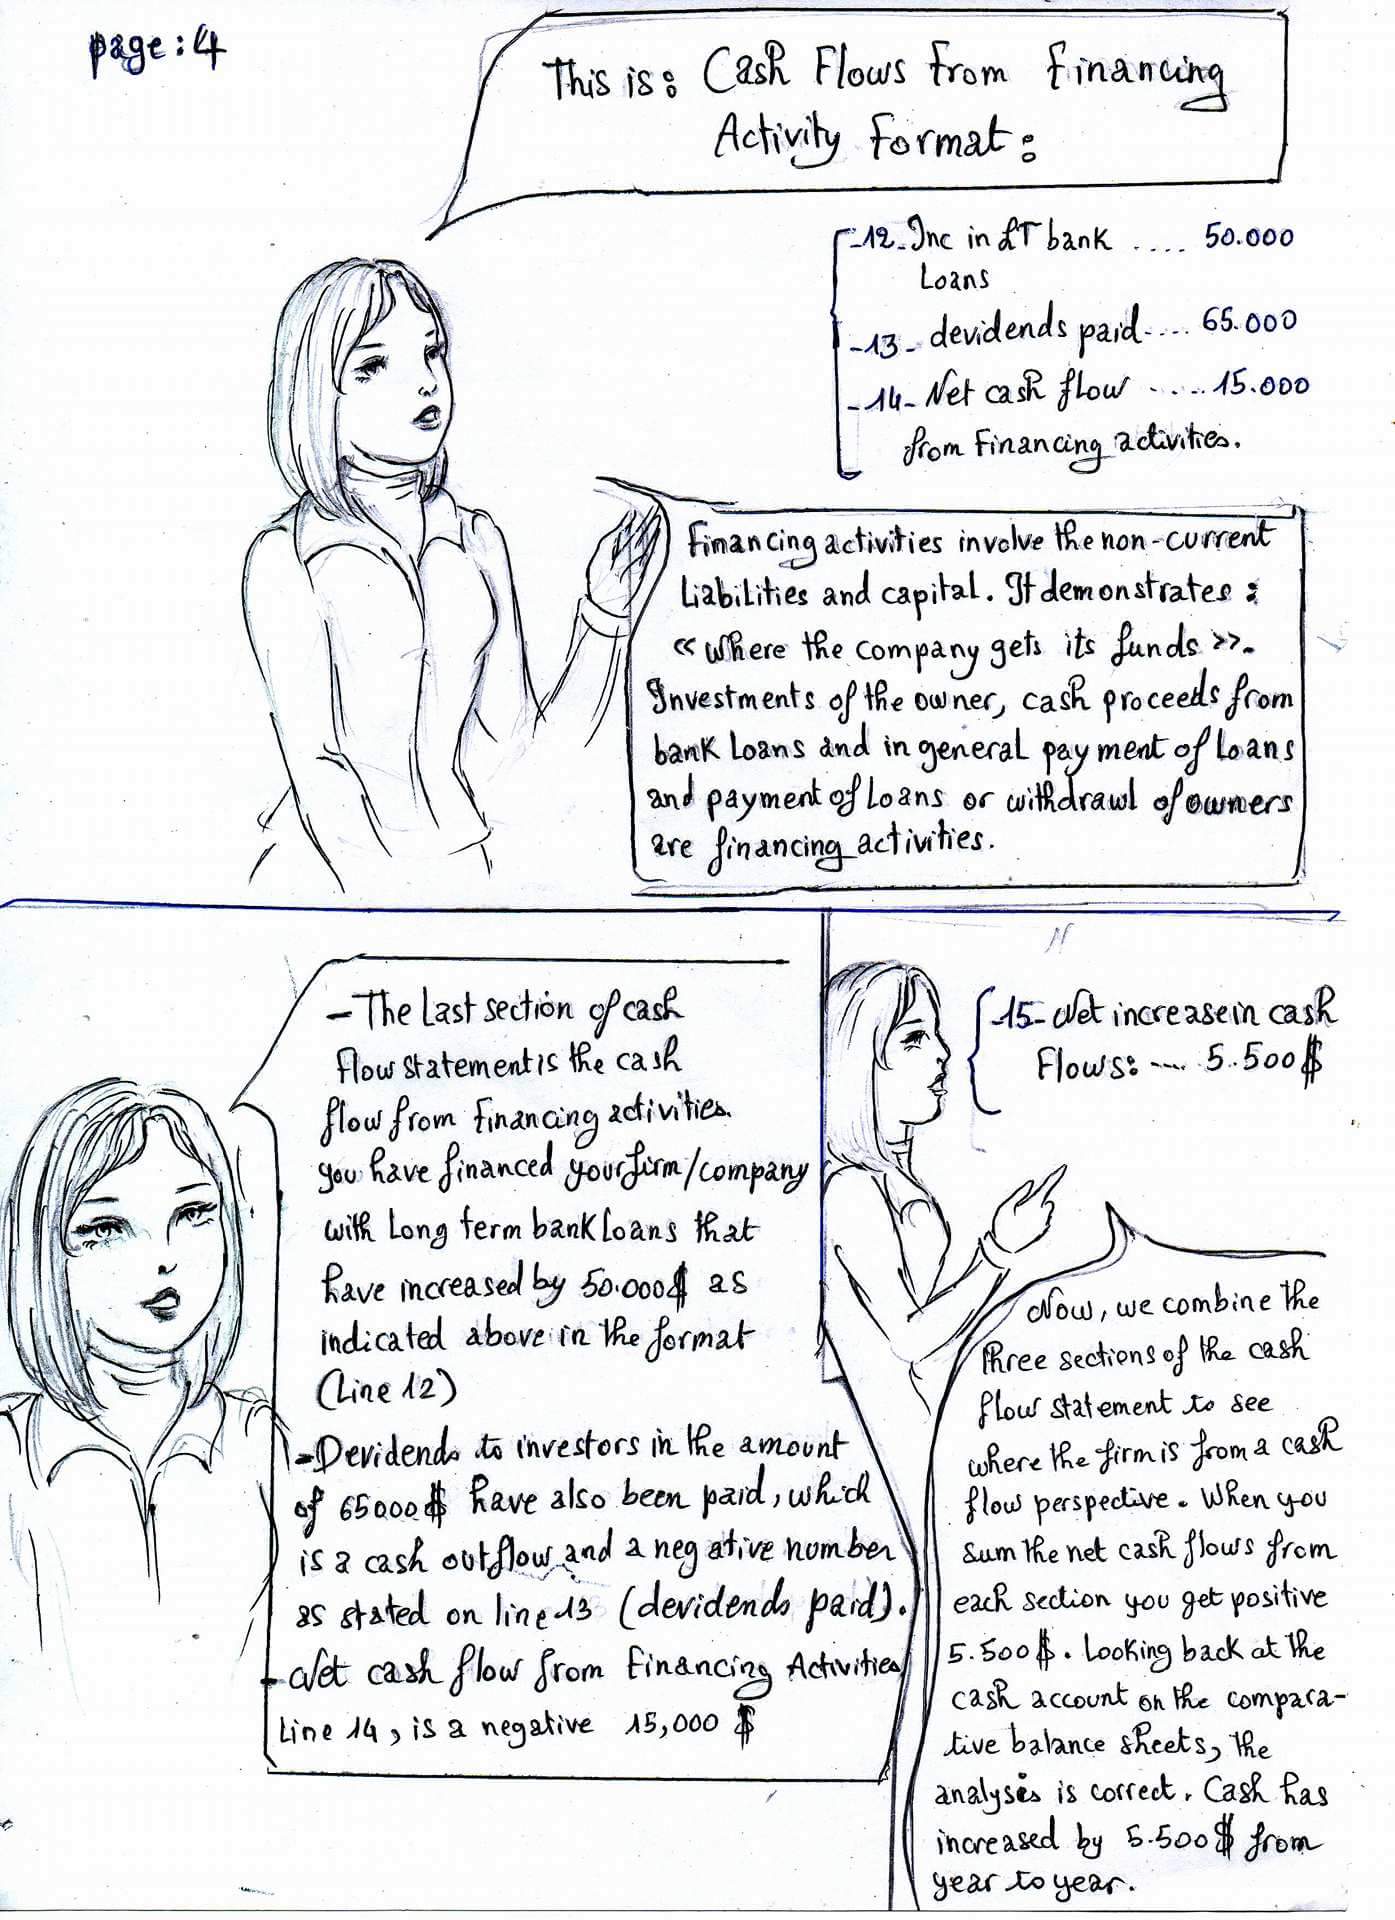 page: 4
This is: Cash Flows from Financing
Activity Format:
-12- Inc in LT bank .... 50.000
Loans
-13- devidends paid .... 65.000
-14- Net cash flow ..... 15.000
from Financing activities.
Financing activities involve the non-current
Liabilities and capital. It demonstrates :
« where the company gets its funds ».
Investments of the owner, cash proceeds from
bank Loans and in general payment of Loans
and payment of Loans or withdrawl of owners
are financing activities.
- The Last section of cash
flow statement is the cash
flow from Financing activities.
you have financed your firm/company
with Long term bank Loans that
have increased by 50.000$ as
indicated above in the format
(Line 12)
- Devidends to investors in the amount
of 65000$ have also been paid, which
is a cash outflow and a negative number
as stated on line 13 (devidends paid).
- Net cash flow from Financing Activities
Line 14, is a negative 15,000 $
-15- Net increase in cash
Flows: .... 5.500$
Now, we combine the
three sections of the cash
flow statement to see
where the firm is from a cash
flow perspective. When you
sum the net cash flows from
each section you get positive
5.500$. Looking back at the
cash account on the compara-
tive balance sheets, the
analysis is correct. Cash has
increased by 5.500$ from
year to year.